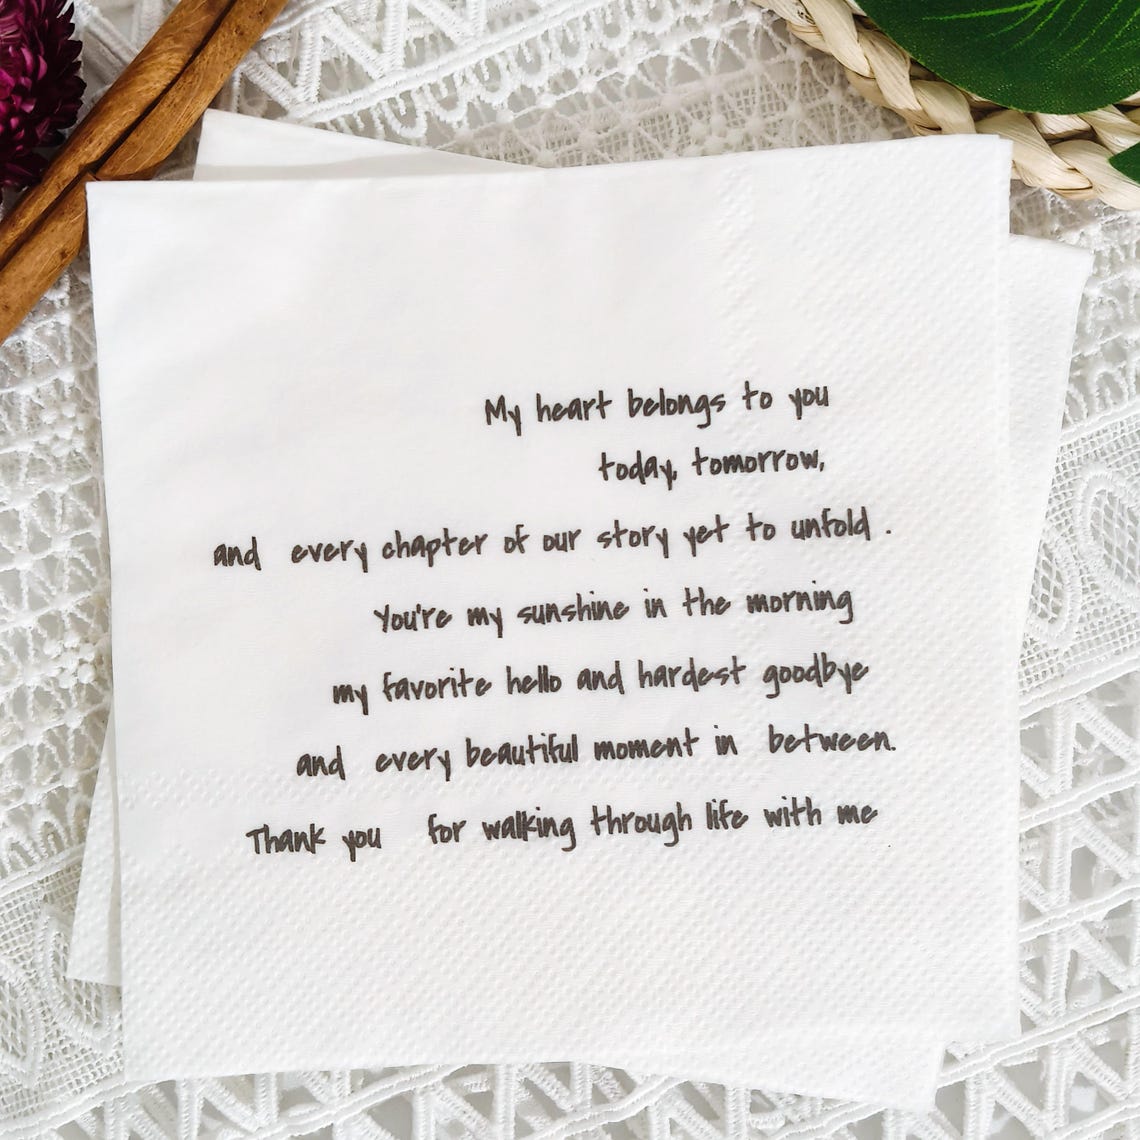 My heart belongs to you
today, tomorrow,
and every chapter of our story yet to unfold .
You're my sunshine in the morning
my favorite hello and hardest goodbye
and every beautiful moment in between.
Thank you for walking through life with me